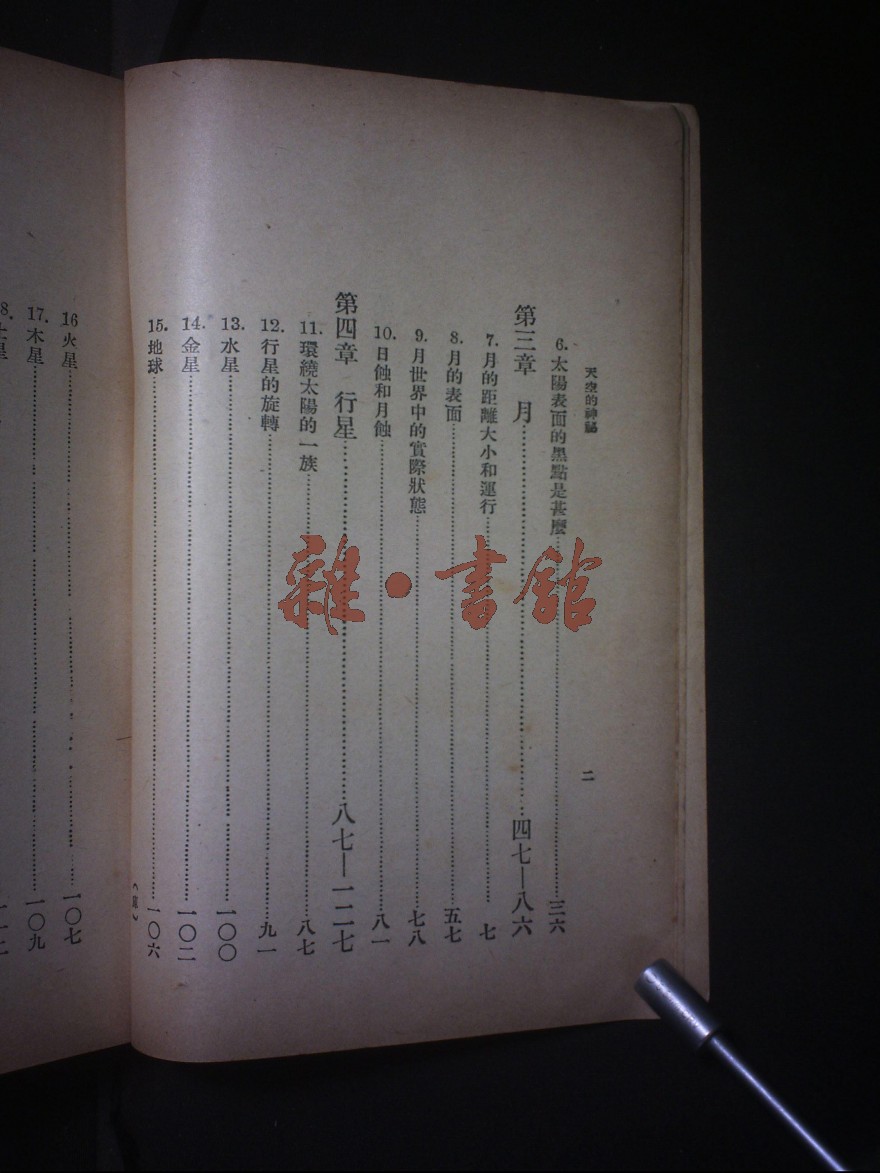 天空的神祕
二
6. 太陽表面的黑點是甚麼……三六
第三章 月……四七—八六
7. 月的距離大小和運行……七
8. 月的表面……五七
9. 月世界中的實際狀態……七八
10. 日蝕和月蝕……八一
第四章 行星……八七—一二七
11. 環繞太陽的一族……八七
12. 行星的旋轉……九一
13. 水星……一〇〇
14. 金星……一〇二
15. 地球……一〇六
16 火星……一〇七
17. 木星……一〇九
雜·書館